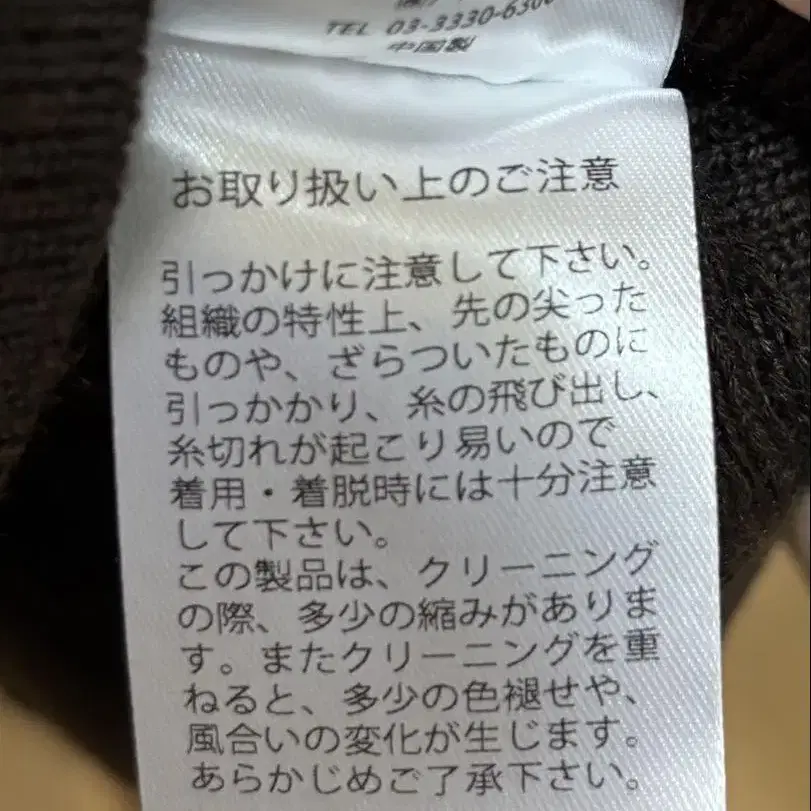 TEL 03-3330-630
中国製
お取り扱い上のご注意
引っかけに注意して下さい。
組織の特性上、先の尖った
ものや、ざらついたものに
引っかかり、糸の飛び出し、
糸切れが起こり易いので
着用・着脱時には十分注意
して下さい。
この製品は、クリーニング
の際、多少の縮みがありま
す。またクリーニングを重
ねると、多少の色褪せや、
風合いの変化が生じます。
あらかじめご了承下さい。